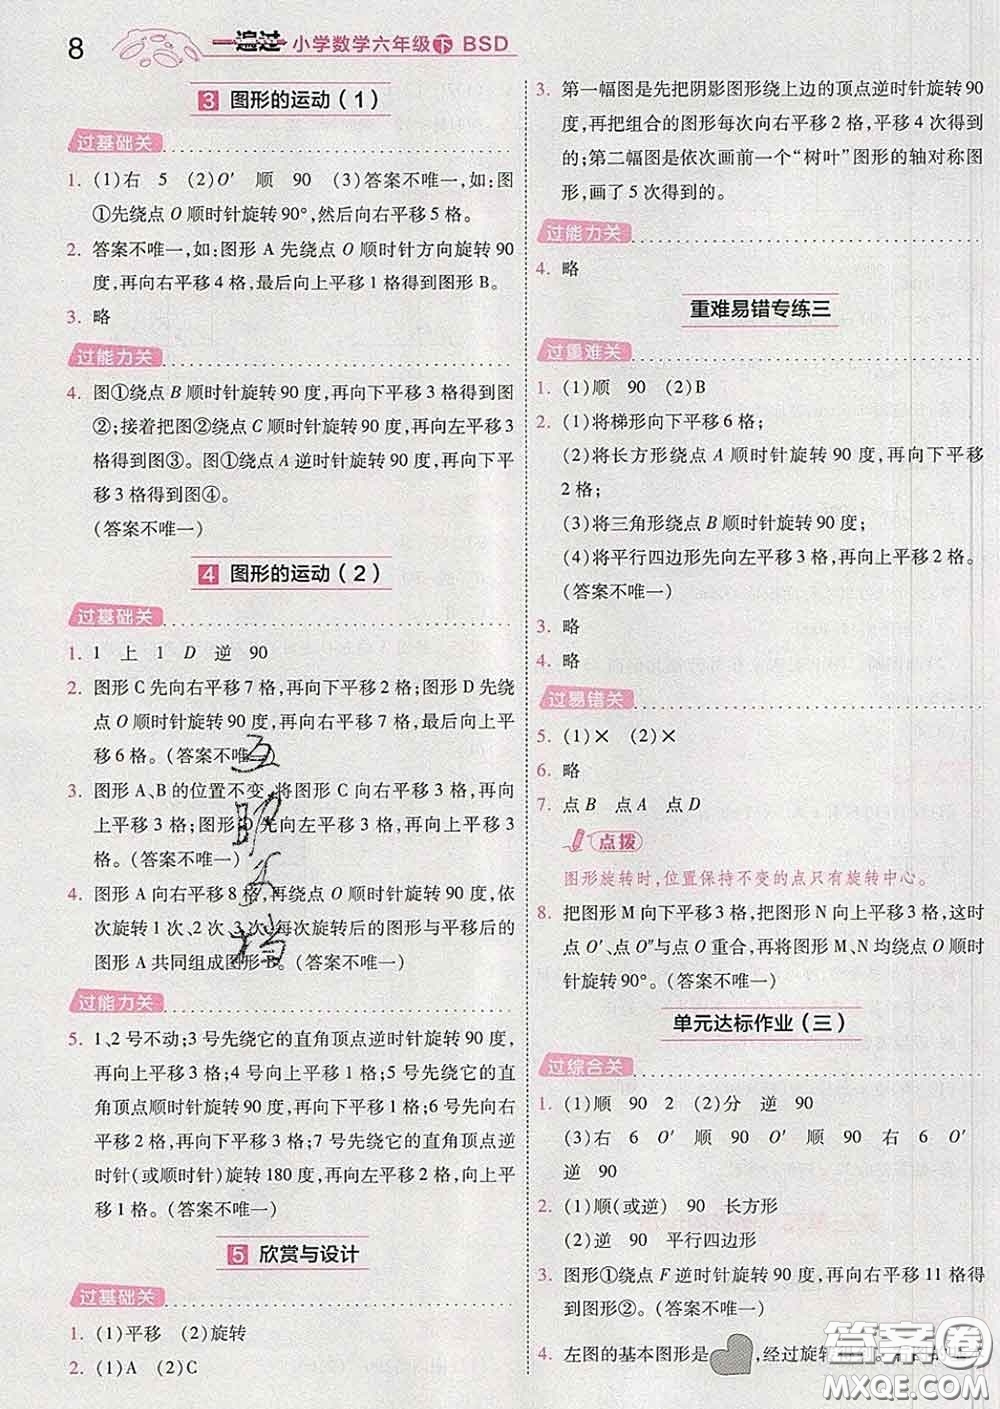 8 一遍过 小学数学六年级下 BSD
3 图形的运动(1)
过基础关
1. (1)右 5 (2)O′ 顺 90 (3)答案不唯一,如:图
①先绕点 O 顺时针旋转90°,然后向右平移5格。
2. 答案不唯一,如:图形 A 先绕点 O 顺时针方向旋转 90
度,再向右平移4格,最后向上平移1格得到图形 B。
3. 略
过能力关
4. 图①绕点 B 顺时针旋转 90 度,再向下平移 3 格得到图
②;接着把图②绕点 C 顺时针旋转 90 度,再向左平移 3
格得到图③。图①绕点 A 逆时针旋转 90 度,再向下平
移3格得到图④。
(答案不唯一)
4 图形的运动(2)
过基础关
1. 1 上 1 D 逆 90
2. 图形 C 先向右平移 7 格,再向下平移 2 格;图形 D 先绕
点 O 顺时针旋转 90 度,再向右平移 7 格,最后向上平
移6格。(答案不唯一)
3. 图形 A、B 的位置不变,将图形 C 向右平移 7 格,再向
上平移 3 格;图形 D 先向左平移 8 格,再向上平移 3
格。(答案不唯一)
4. 图形 A 向右平移 8 格,再绕点 O 顺时针旋转 90 度,依
次旋转 1 次、2 次、3 次,每次旋转后的图形与平移后的
图形 A 共同组成图形 B。(答案不唯一)
过能力关
5. 1、2 号不动;3 号先绕它的直角顶点逆时针旋转 90 度,
再向上平移 3 格;4 号向上平移 1 格;5 号先绕它的直
角顶点顺时针旋转 90 度,再向上平移 1 格;6 号先向右
平移 2 格,再向上平移 3 格;7 号先绕它的直角顶点逆
时针(或顺时针)旋转 180 度,再向左平移 2 格,向上平移
1 格。(答案不唯一)
5 欣赏与设计
过基础关
1. (1)平移 (2)旋转
2. (1)A (2)C
3. 第一幅图是先把阴影图形绕上边的顶点逆时针旋转 90
度,再把组合的图形每次向右平移 2 格,平移 4 次得到
的;第二幅图是依次画前一个“树叶”图形的轴对称图
形,画了 5 次得到的。
过能力关
4. 略
重难易错专练三
过重难关
1. (1)顺 90 (2)B
2. (1)将梯形向下平移6格;
(2)将长方形绕点 A 顺时针旋转 90 度,再向下平移
2格;
(3)将三角形绕点 B 顺时针旋转 90 度;
(4)将平行四边形先向左平移 3 格,再向上平移 2 格。
(答案不唯一)
3. 略
4. 略
过易错关
5. (1)× (2)×
6. 略
7. 点B 点A 点D
点拨
图形旋转时,位置保持不变的点只有旋转中心。
8. 把图形 M 向下平移 3 格,把图形 N 向上平移 3 格,这时
点 O′、点 O″与点 O 重合,再将图形 M、N 均绕点 O 顺时
针旋转90°。(答案不唯一)
单元达标作业(三)
过综合关
1. (1)顺 90 2 (2)分 逆 90
(3)右 6 O′ 顺 90 O′ 顺 90 右 6 O′
逆 90
2. (1)顺(或逆) 90 长方形
(2)逆 90 平行四边形
3. 图形①绕点 F 逆时针旋转 90 度,再向右平移 11 格得到
图形②。(答案不唯一)
4. 左图的基本图形是 ,经过旋转
互助文档
答案圈
MXQE.COM